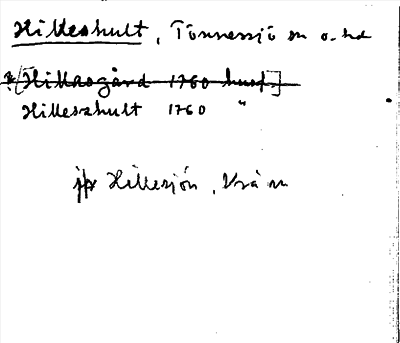 Hilleshult, Tönnersjö sn o. hd
[Hillesgård 1760 husf.]
Hilleshult 1760 "
jfr Hillesjön, Vrå sn